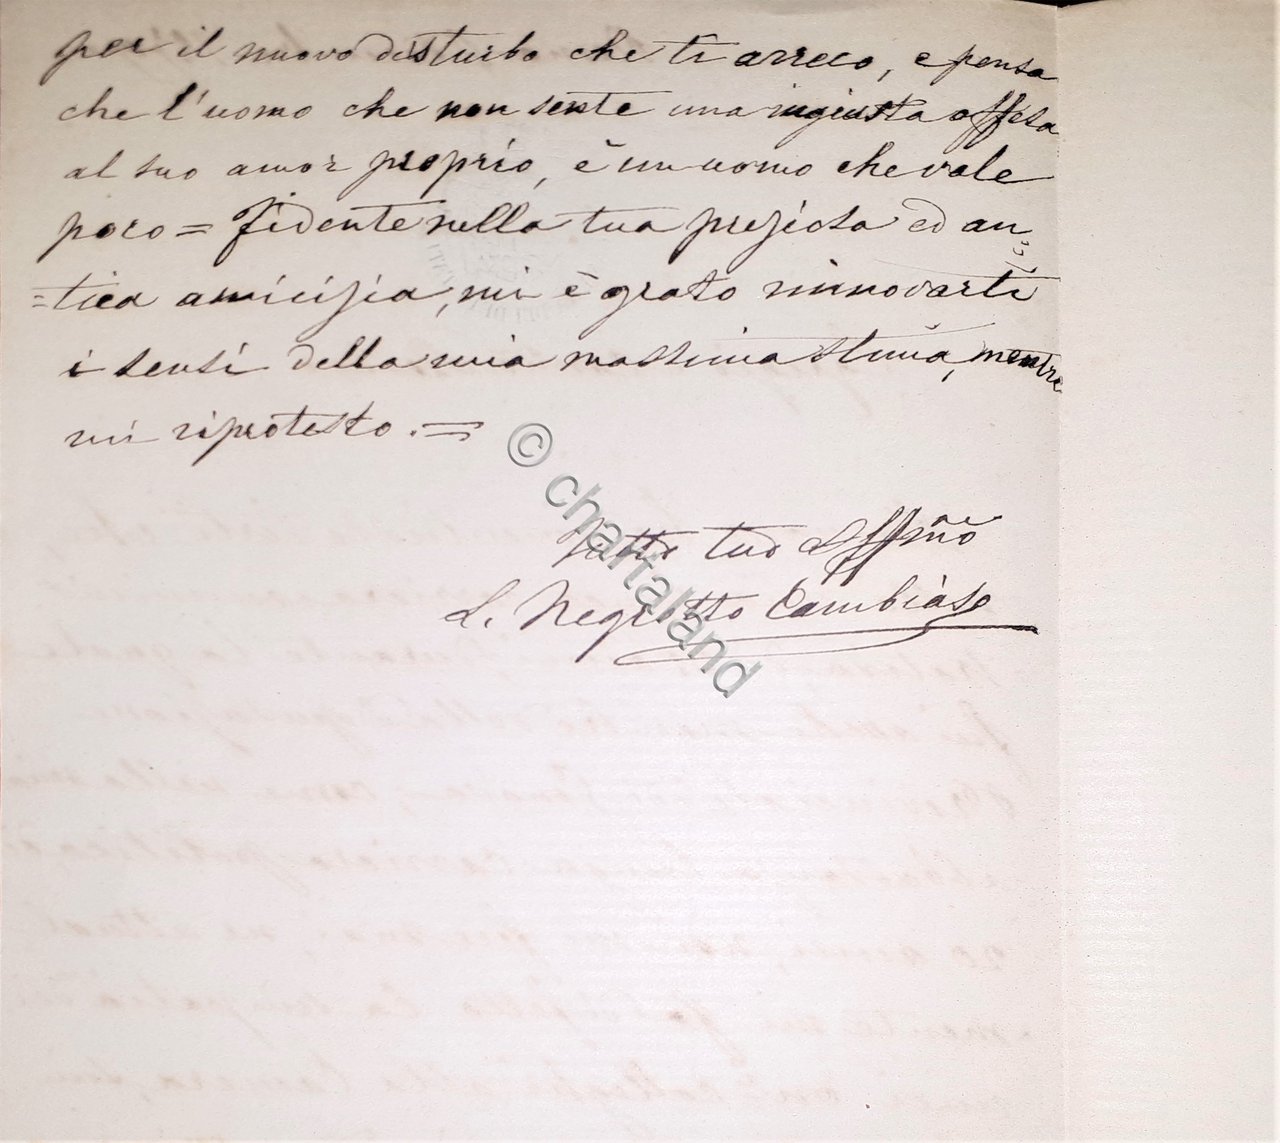 per il nuovo disturbo che ti arreco, e pensa
che l'uomo che non sente una ingiusta offesa
al suo amor proprio, è un uomo che vale
poco = Fidente nella tua pregiata ed an
=tica amicizia, mi è grato rinnovarti
i sensi della mia massima stima, mentre
mi riprotesto. =
© chartaland
tuo Affmo
L. Negrotto Cambiaso